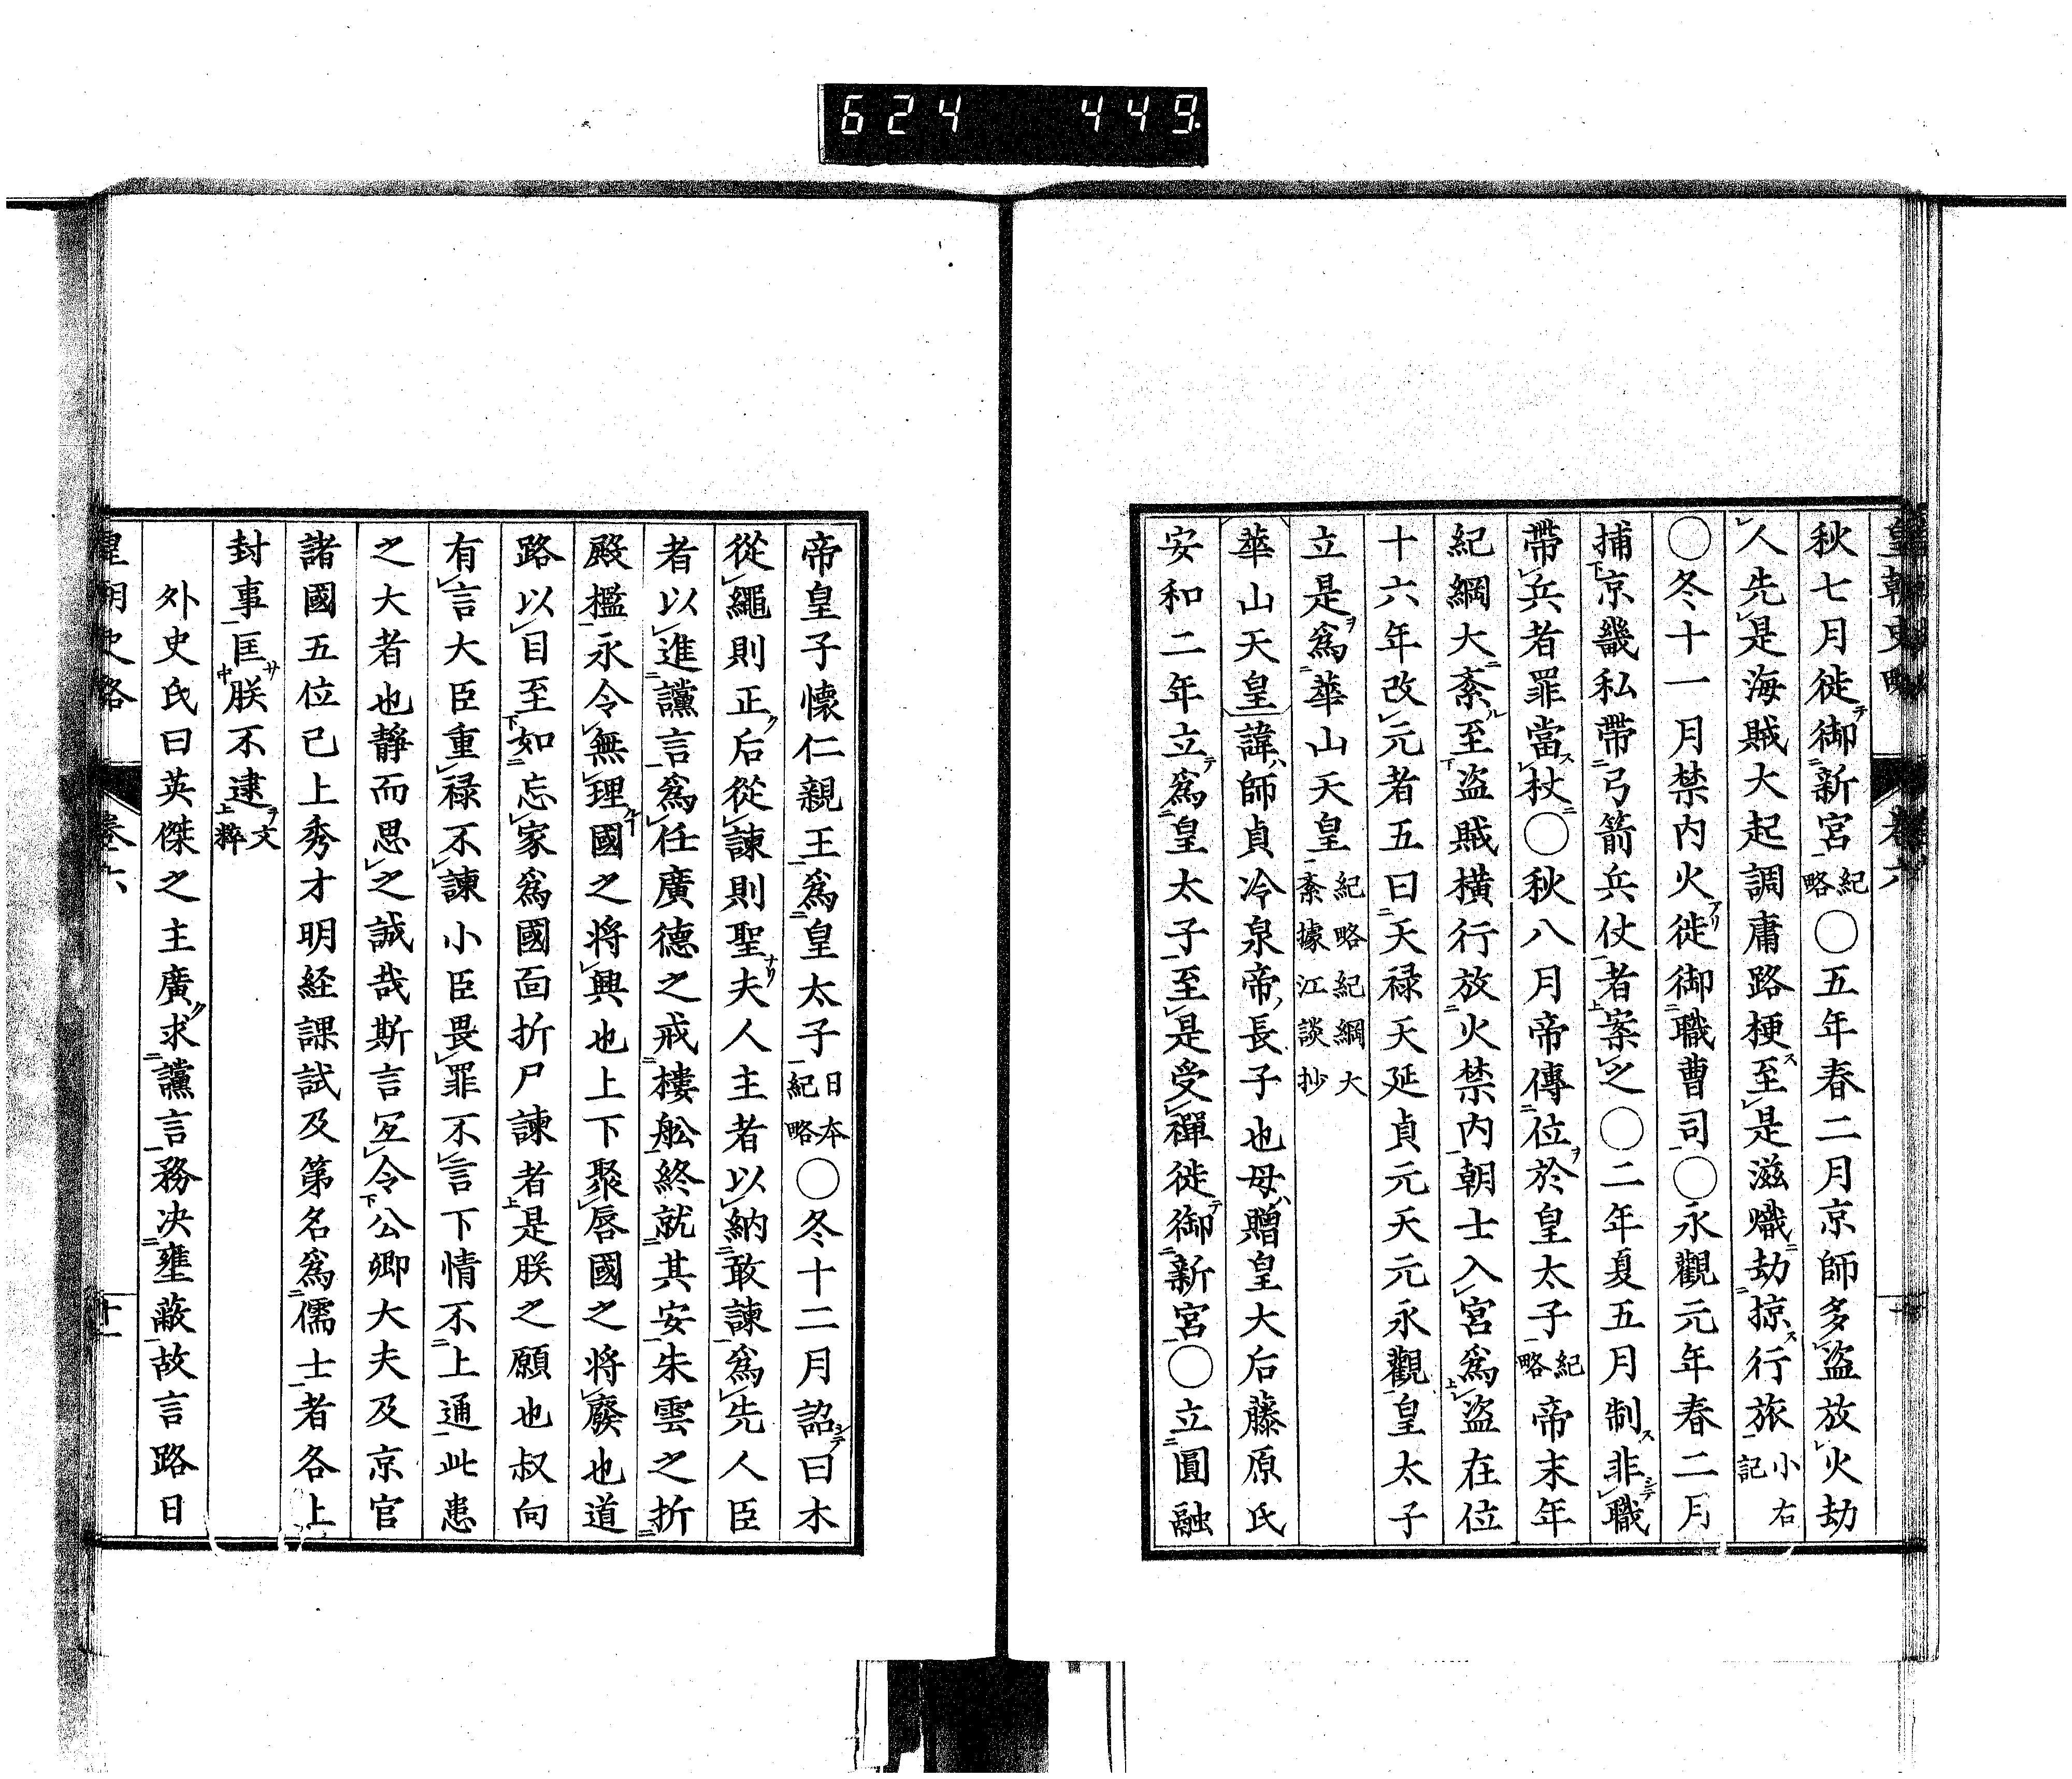 624 449.
皇朝史略 卷六
秋七月徙御新宮紀略〇五年春二月京師多盜放火劫
人先是海賊大起調庸路梗至是滋熾劫掠行旅小右記
〇冬十一月禁内火徙御職曹司〇永觀元年春二月
捕京畿私帶弓箭兵仗者案之〇二年夏五月制非職
帶兵者罪當杖〇秋八月帝傳位於皇太子紀略帝末年
紀綱大紊至盜賊横行放火禁内朝士入宮爲盜在位
十六年改元者五曰天禄天延貞元天元永觀皇太子
立是爲華山天皇紀略紀綱大紊據江談抄
華山天皇諱師貞冷泉帝長子也母贈皇大后藤原氏
安和二年立爲皇太子至是受禪徙御新宮〇立圓融
帝皇子懷仁親王爲皇太子日本紀略〇冬十二月詔曰木
從繩則正后從諫則聖夫人主者以納敢諫爲先人臣
者以進讜言爲任廣德之戒樓舩終就其安朱雲之折
殿檻永令無理國之將興也上下聚唇國之將廢也道
路以目至如忘家爲國面折尸諫者是朕之願也叔向
有言大臣重禄不諫小臣畏罪不言下情不上通此患
之大者也靜而思之誠哉斯言冝令公卿大夫及京官
諸國五位已上秀才明経課試及第名爲儒士者各上
封事匡朕不逮文粹
外史氏曰英傑之主廣求讜言務决壅蔽故言路日
皇朝史略 卷六 十一